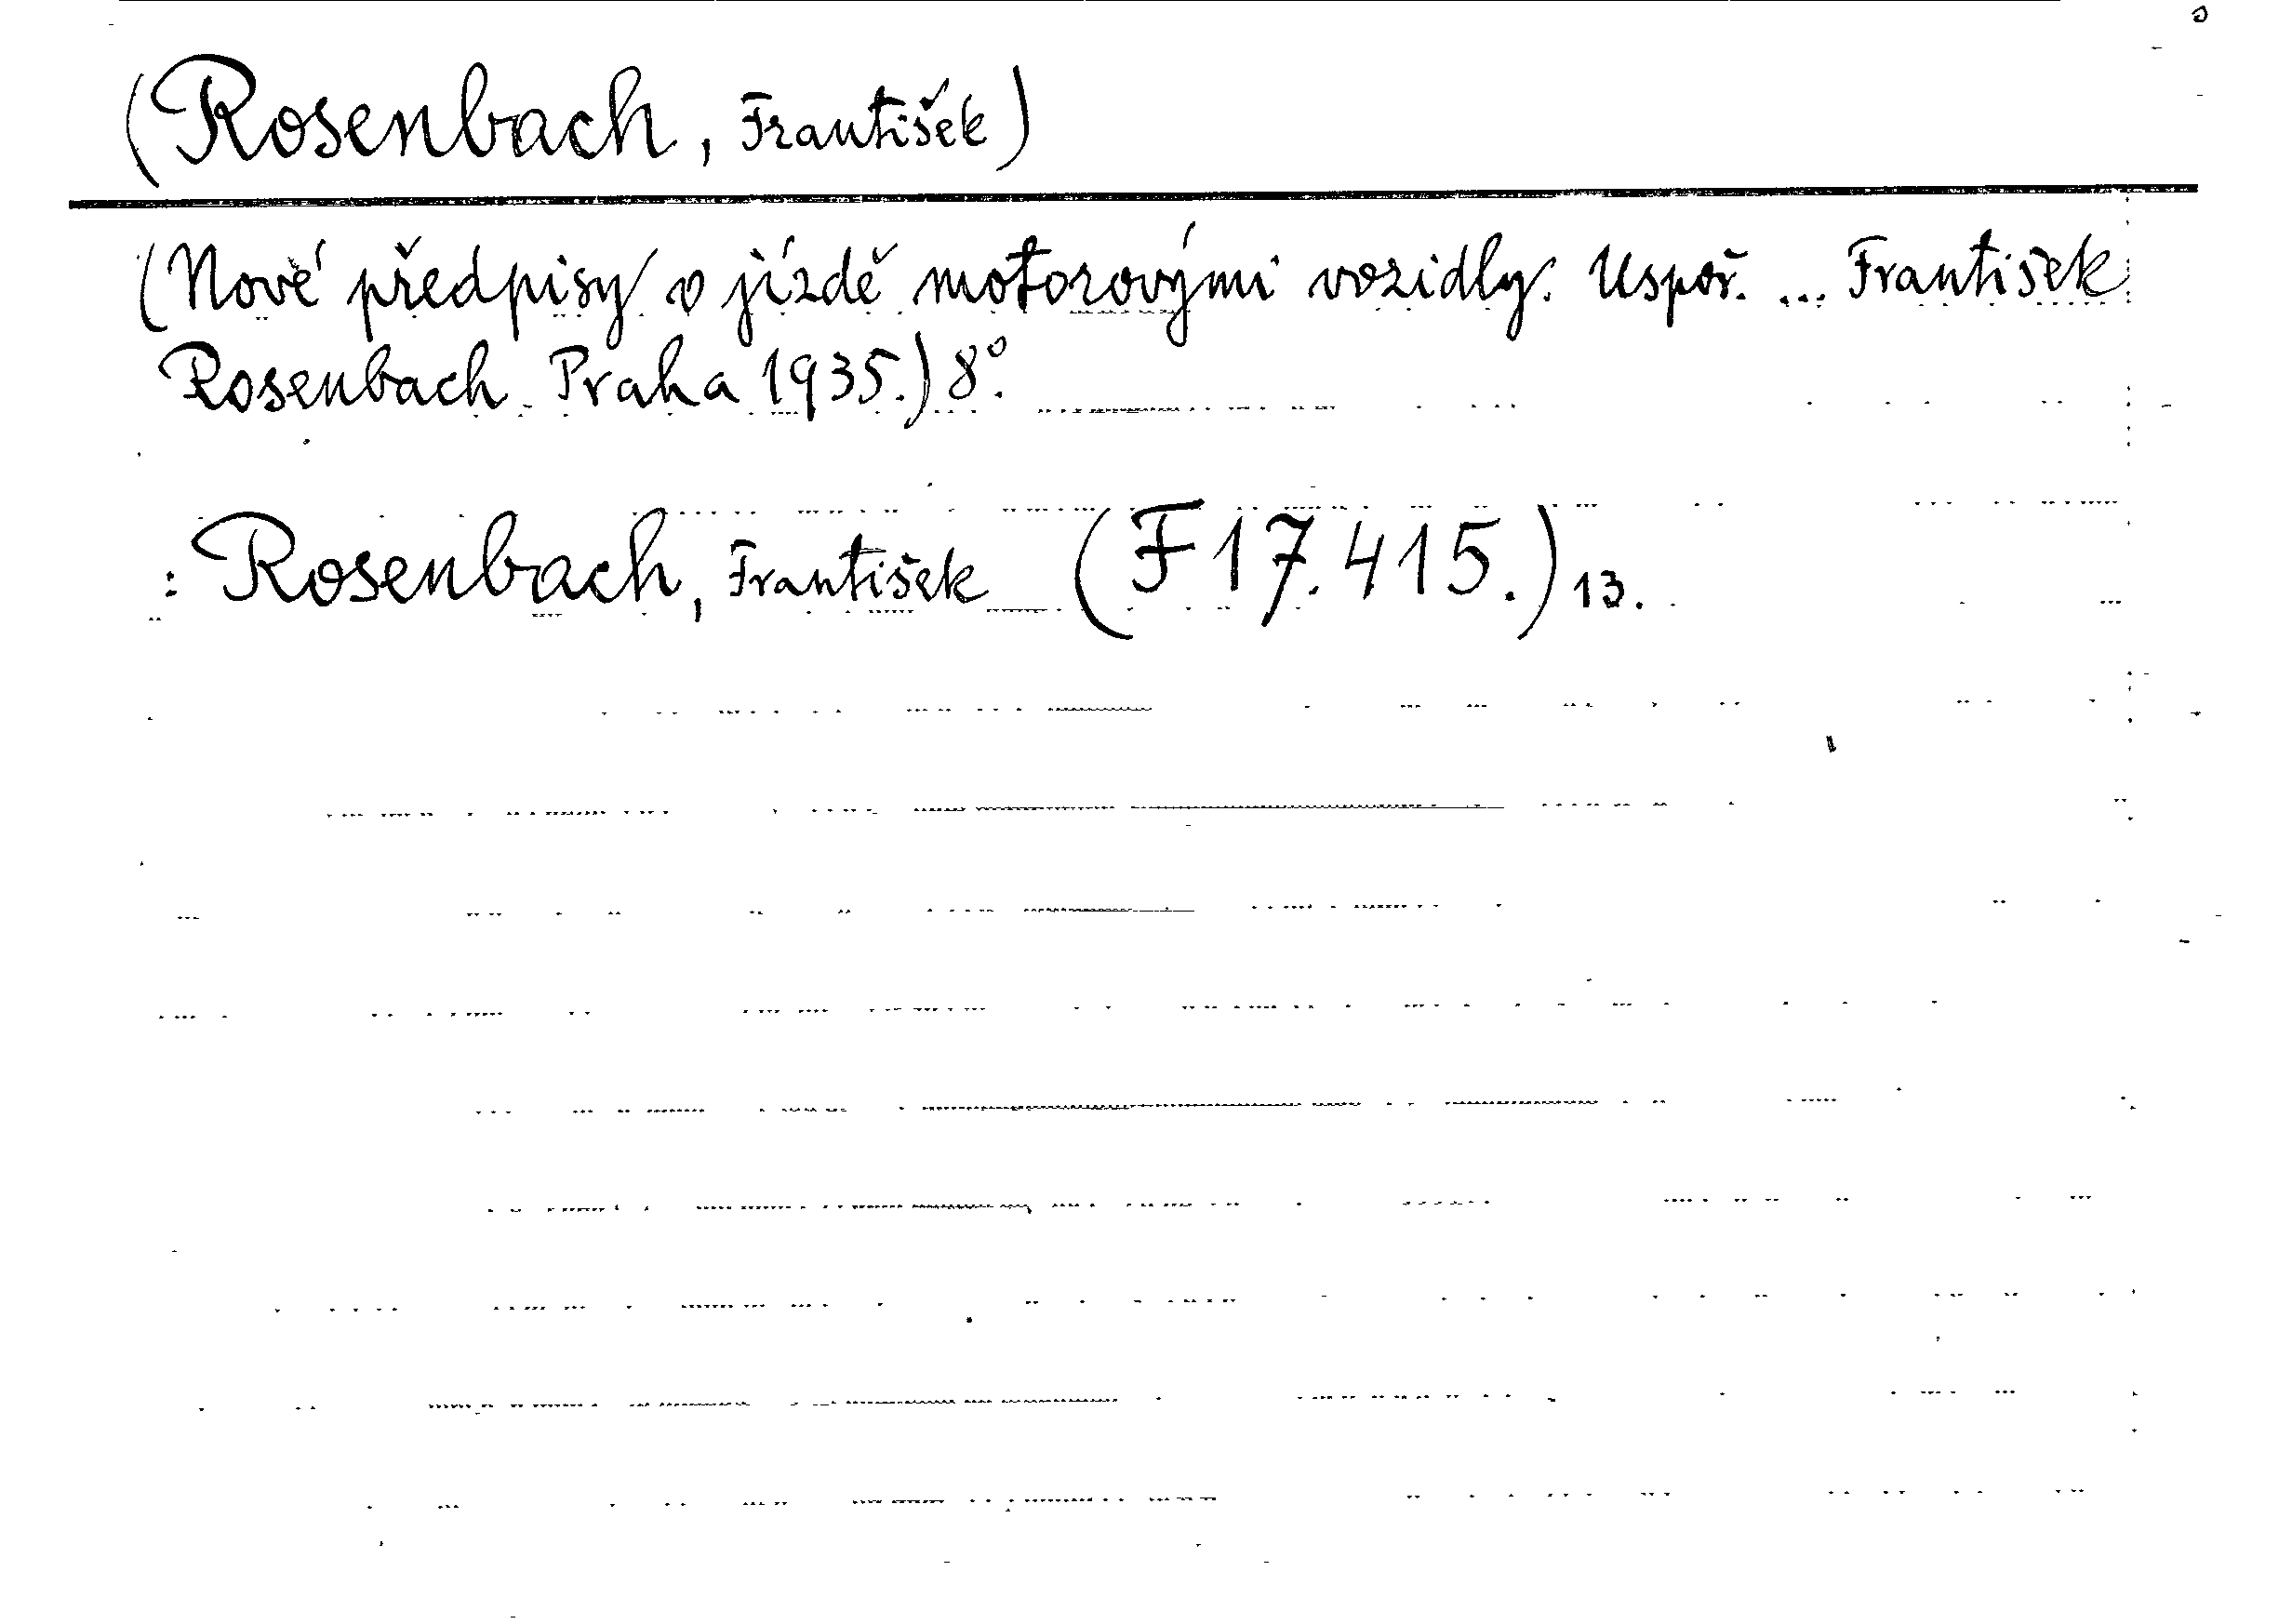 (Rosenbach, František)
(Nové předpisy o jízdě motorovými vozidly. Uspoř. ... František
Rosenbach. Praha 1935.) 8°.
: Rosenbach, František (F 17.415.) 13.